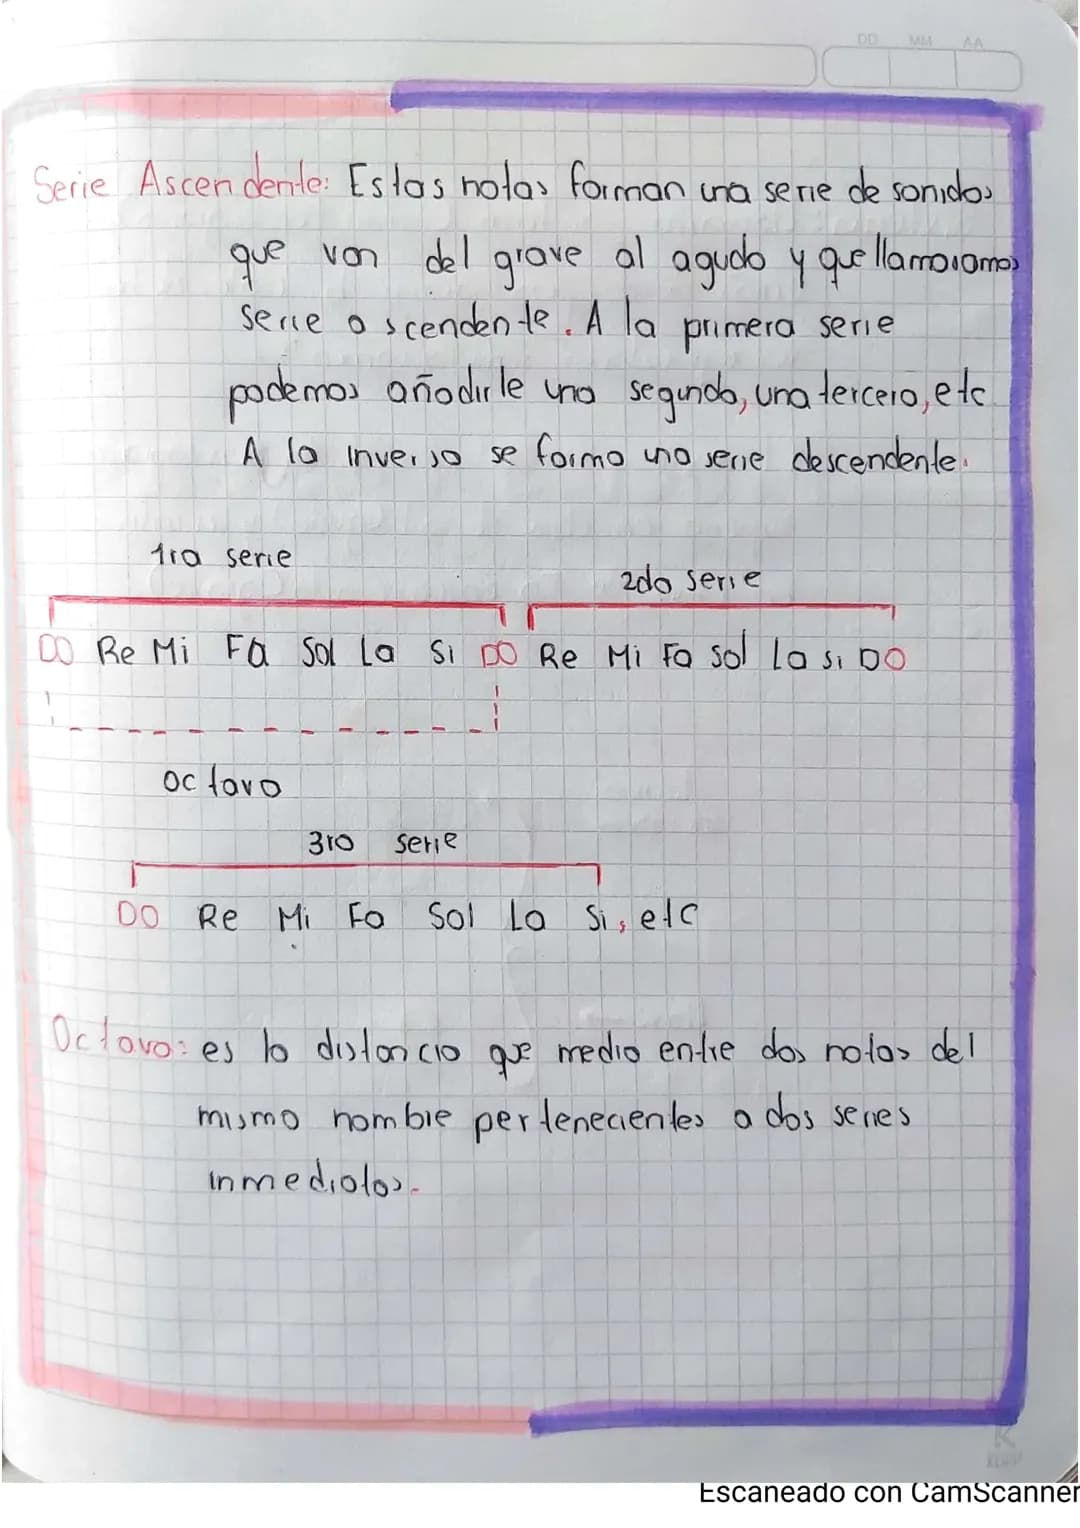 DD MM AA
Serie Ascendente: Estas notas forman una serie de sonidos
que van del grave al agudo y que llamaramos
serie ascendente. A la primera serie
podemos añadirle una segunda, una tercera, etc
A la inversa se forma una serie descendente.
1ra serie
2da serie
DO Re Mi Fa Sol La Si DO Re Mi Fa sol La si DO
octava
3ra serie
DO Re Mi Fa Sol La Si, etc
Octava: es la distancia que media entre dos notas del
mismo nombre pertenecientes a dos series
inmediatas.
Escaneado con CamScanner